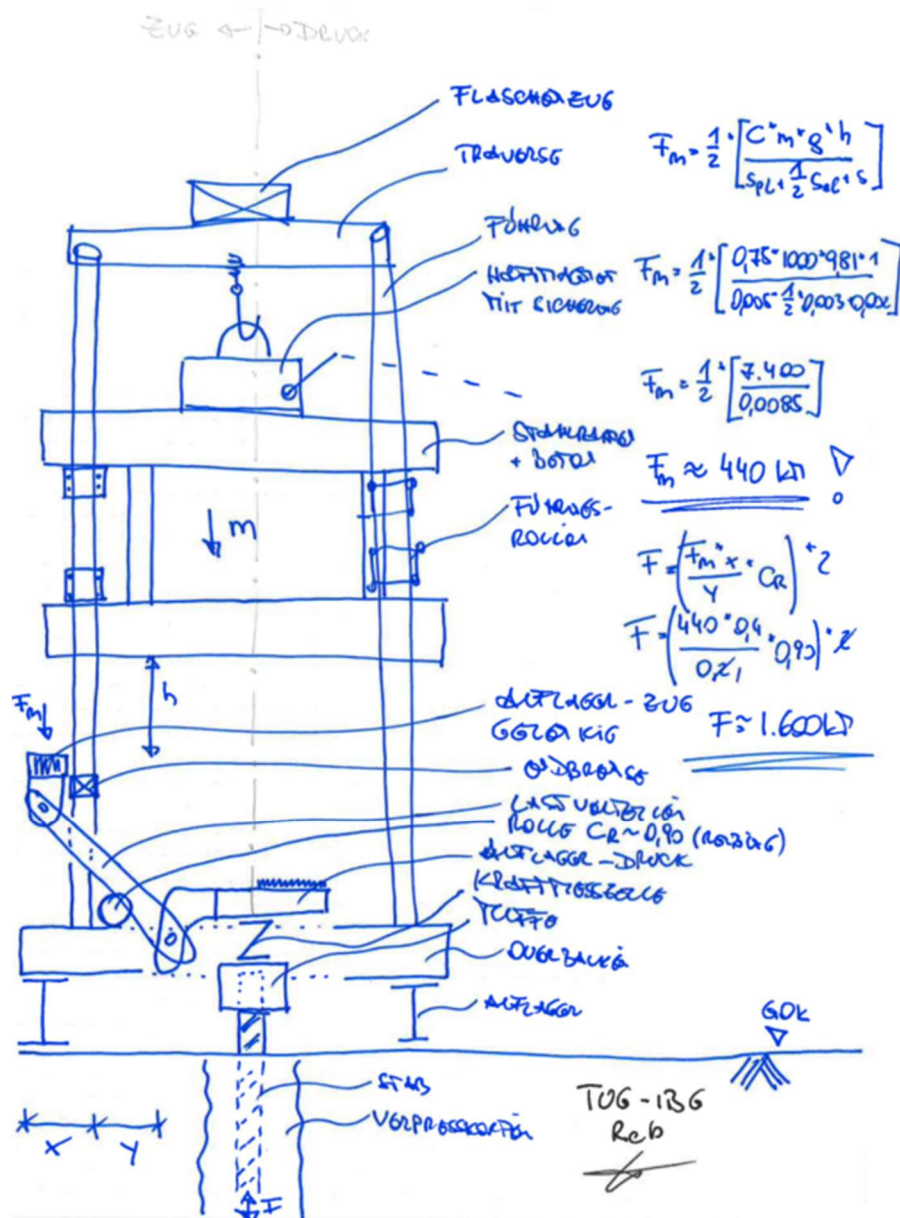 ZUG ← → DRUCK
FLASCHENZUG
TRAVERSE
FÜHRUNG
MIT SICHERUNG
STAHLRAHMEN
+ BETON
FÜHRUNGS-
ROLLEN
m
h
Fm
AUFLAGER - ZUG
GELENKIG
ENDBREMSE
ROLLE CR ~ 0,90 (REIBUNG)
AUFLAGER - DRUCK
KRAFTMESSZELLE
MUFFE
QUERBALKEN
AUFLAGER
GOK
STAB
VERPRESSKÖRPER
x y
F
Fm = 1/2 * [C * m * g * h / spl + 1/2 sel + s]
Fm = 1/2 * [0,75 * 1000 * 9,81 * 1 / 0,005 + 1/2 * 0,003 + 0,002]
Fm = 1/2 * [7.400 / 0,0085]
Fm ≈ 440 kN !
F = (Fm * x / y * CR) * 2
F ≈ 1.600 kN
TUG - IBG